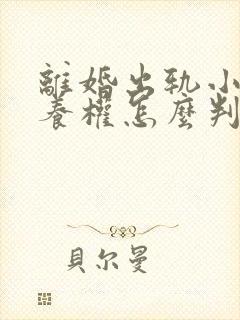 離婚出軌小
養權怎麼判
貝尔曼